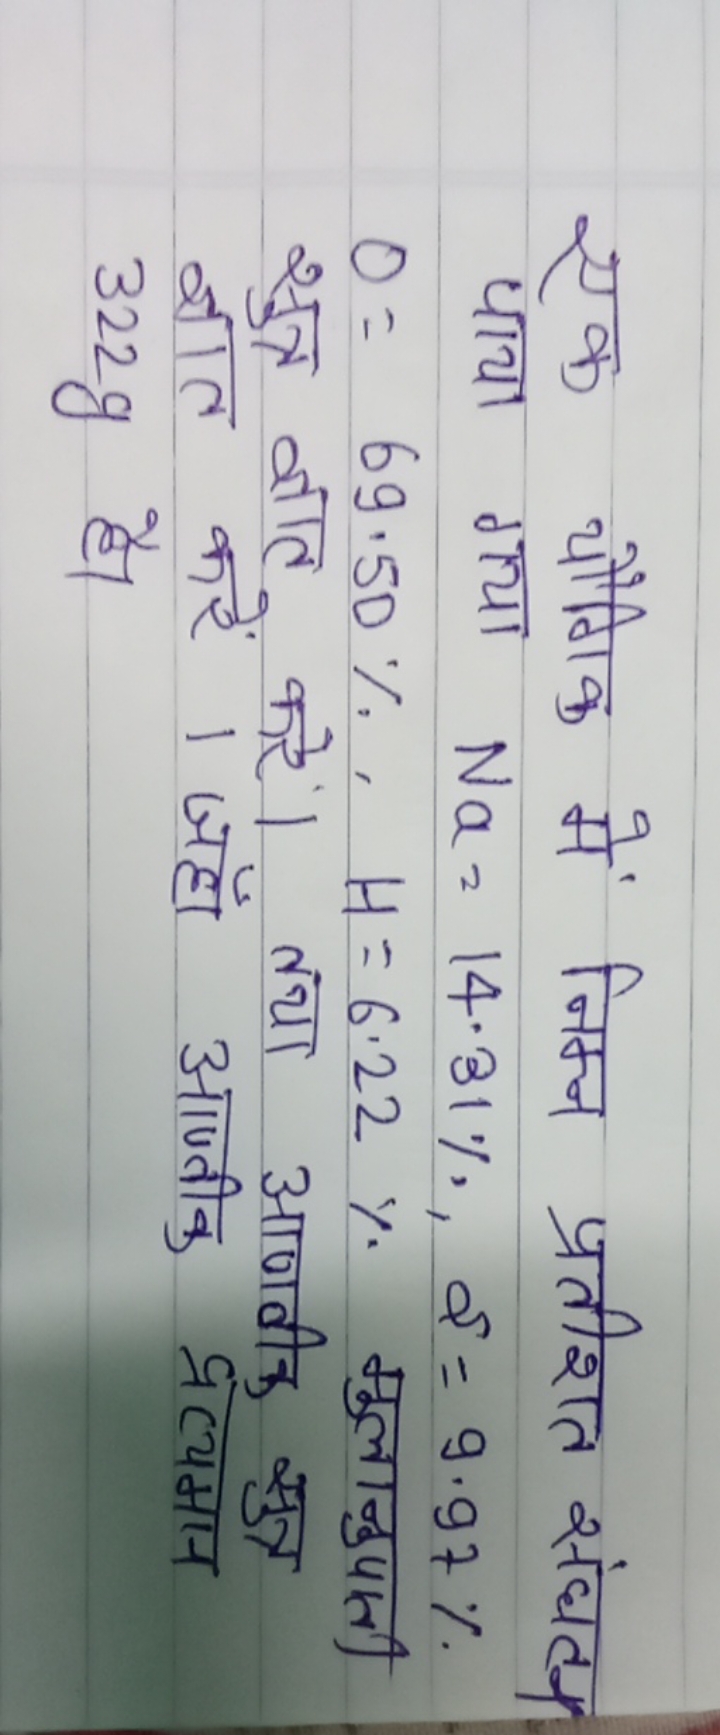 एक यौगिक में निम्न प्रतीशत संघटन
पाया गया Na = 14.31%, S = 9.97%
O = 69.50%, H = 6.22 % मुलानुपाती
सुत्र ज्ञात करें। तथा आण्वीक सुत्र
ज्ञात करें । जहाँ आण्वीक द्रव्यमान
322g है।